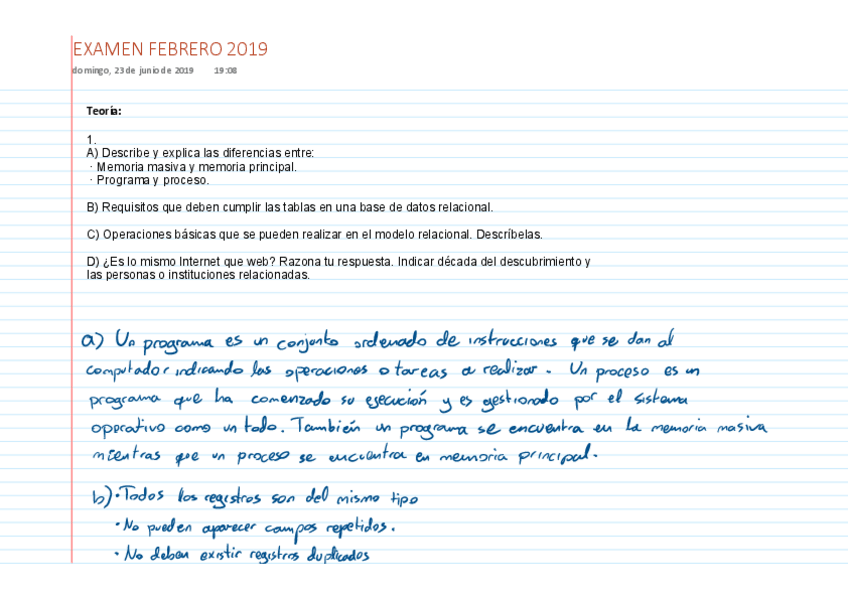 EXAMEN FEBRERO 2019
domingo, 23 de junio de 2019 19:08
Teoría:
1.
A) Describe y explica las diferencias entre:
· Memoria masiva y memoria principal.
· Programa y proceso.
B) Requisitos que deben cumplir las tablas en una base de datos relacional.
C) Operaciones básicas que se pueden realizar en el modelo relacional. Descríbelas.
D) ¿Es lo mismo Internet que web? Razona tu respuesta. Indicar década del descubrimiento y
las personas o instituciones relacionadas.
a) Un programa es un conjunto ordenado de instrucciones que se dan al
computador indicando las operaciones o tareas a realizar. Un proceso es un
programa que ha comenzado su ejecución y es gestionado por el sistema
operativo como un todo. También un programa se encuentra en la memoria masiva
mientras que un proceso se encuentra en memoria principal.
b) · Todos los registros son del mismo tipo
· No pueden aparecer campos repetidos.
· No deben existir registros duplicados